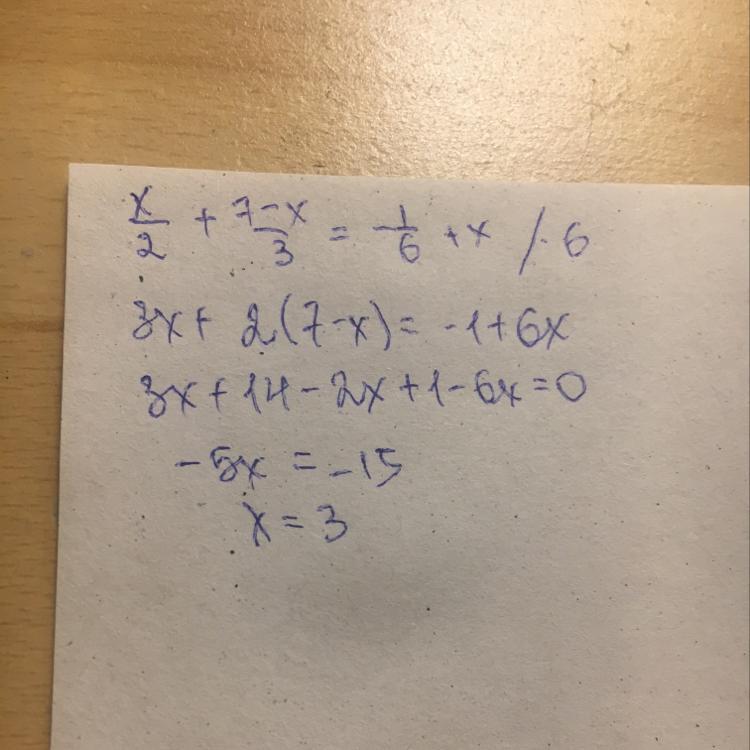 x/2 + 7-x/3 = -1/6 + x /· 6
3x + 2(7-x) = -1+6x
3x + 14 - 2x + 1 - 6x = 0
-5x = -15
x = 3